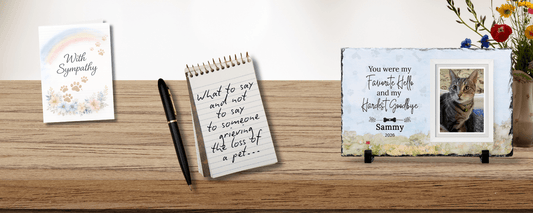 With
Sympathy
What to say
and not
to say
to someone
grieving
the loss of
a pet...
You were my
Favorite Hello
and my
Hardest Goodbye
Sammy
2026